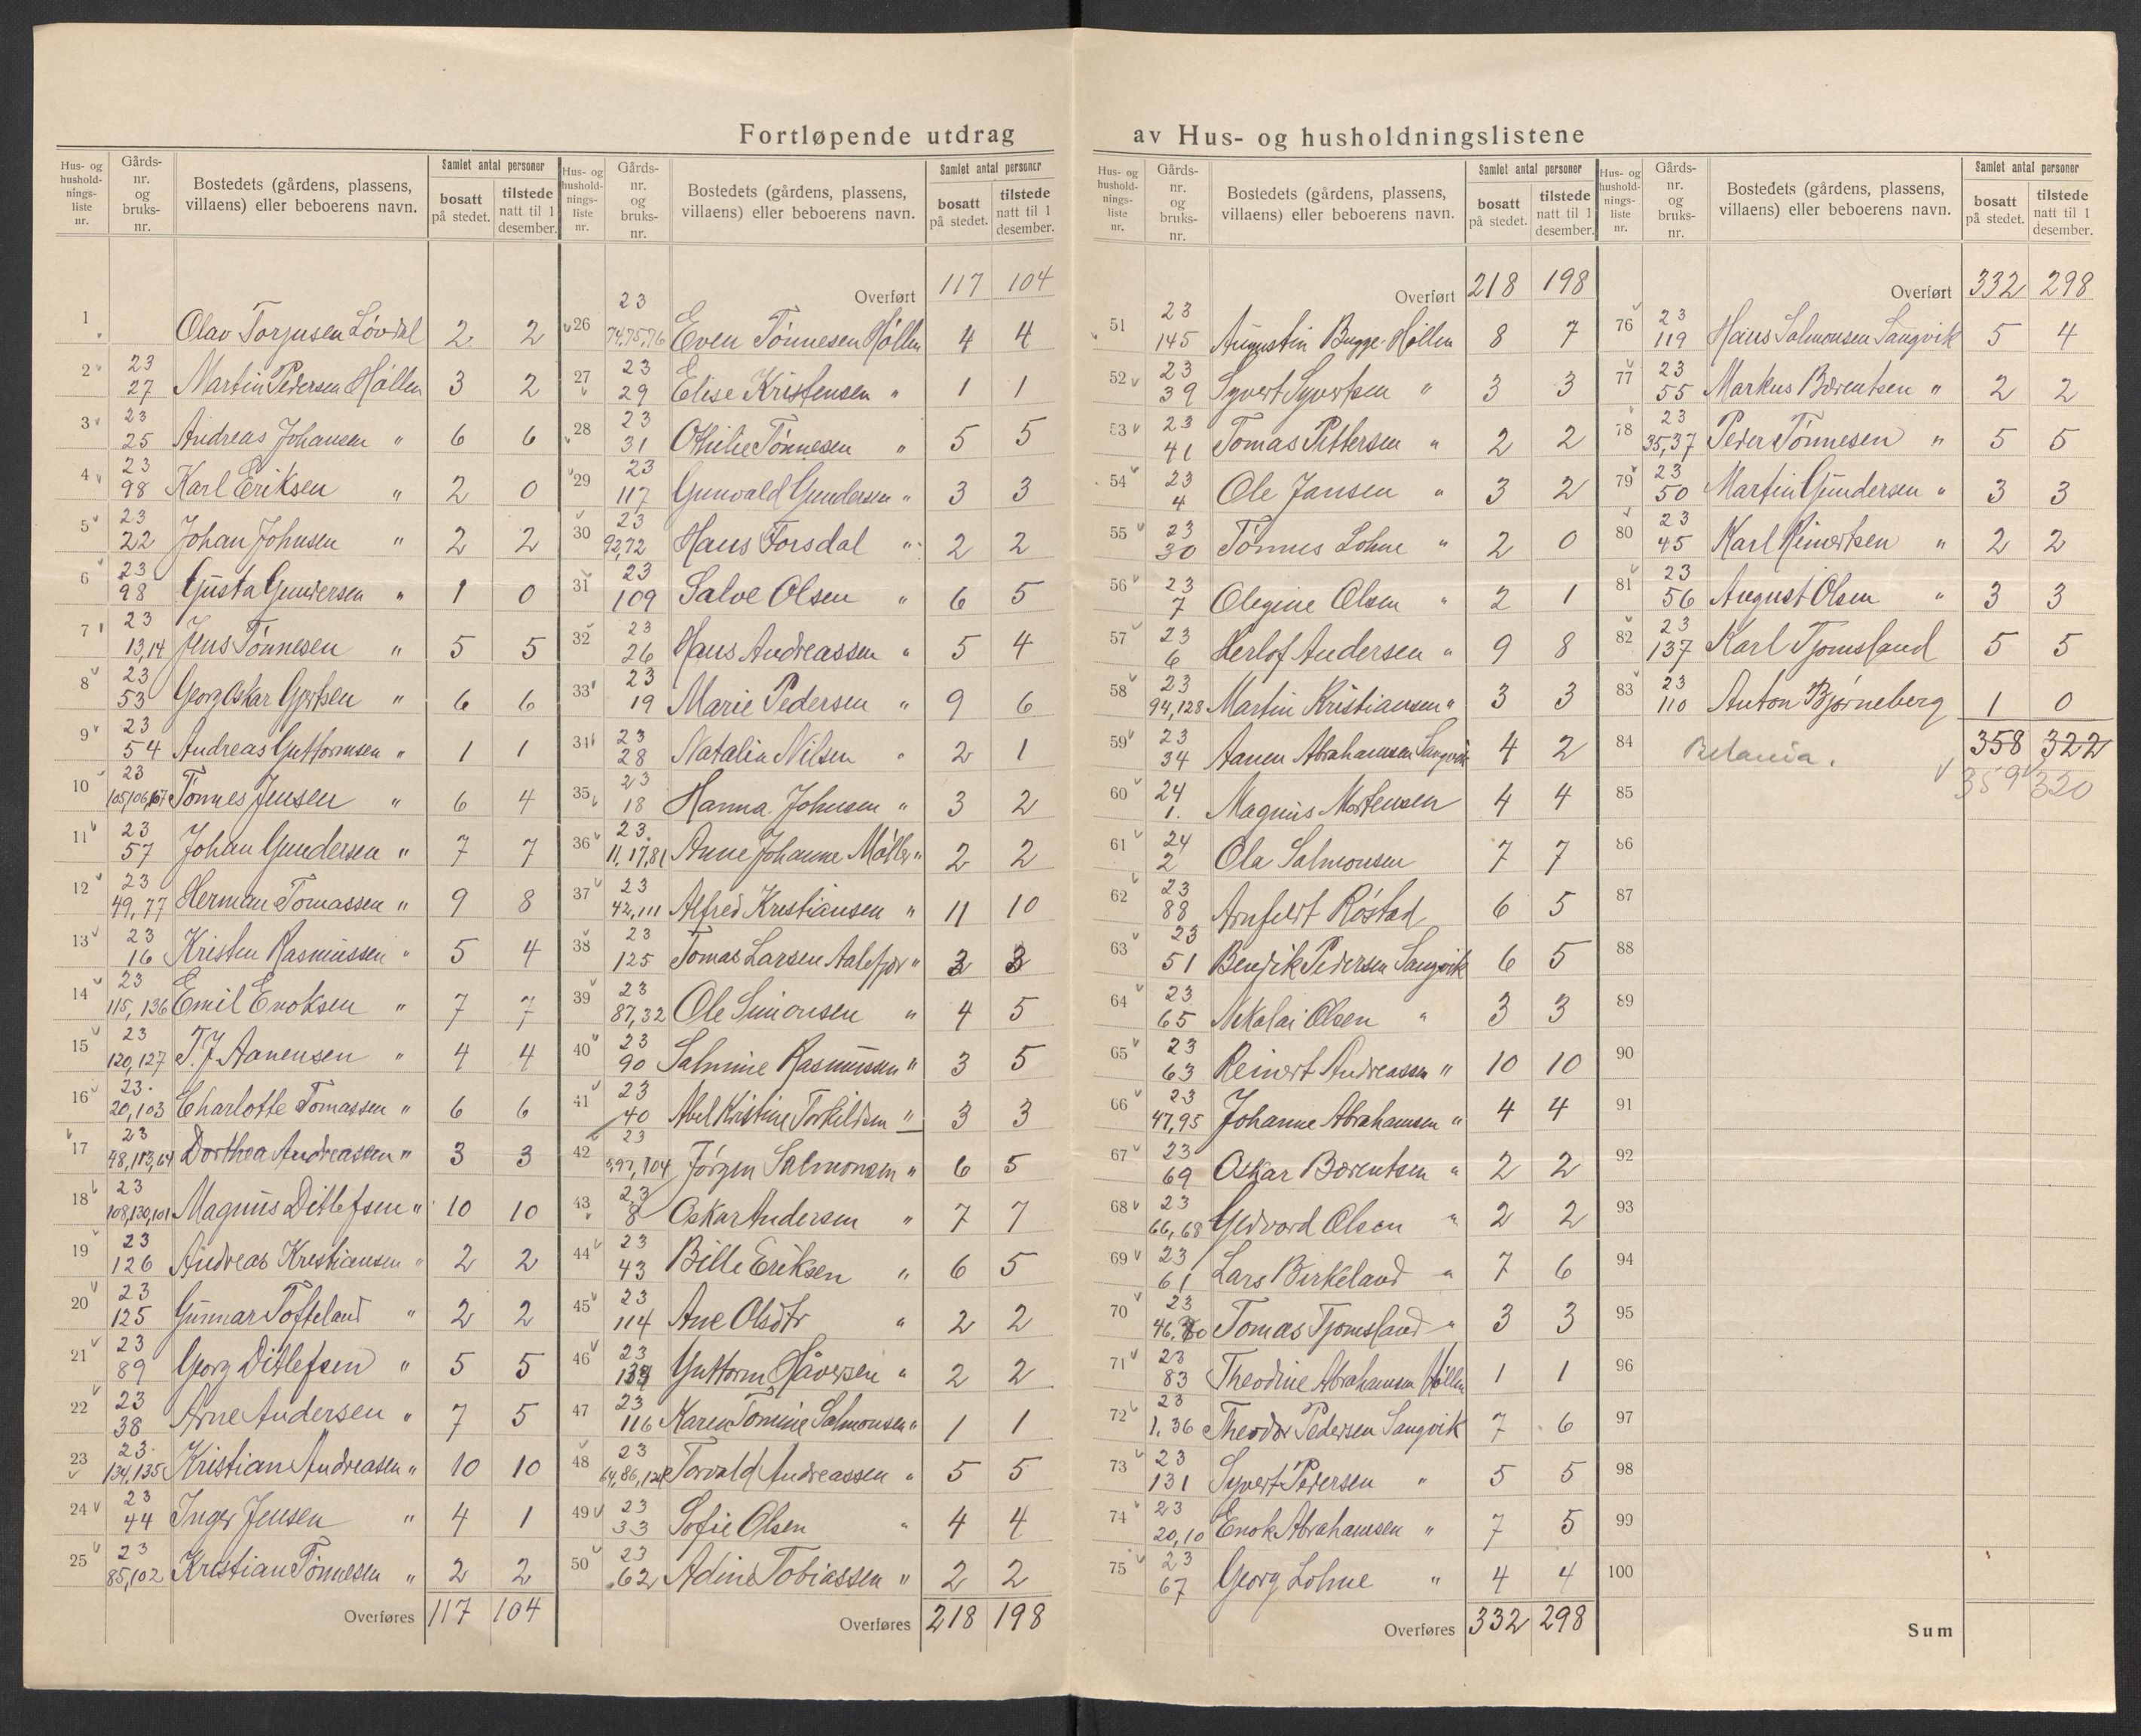 Fortløpende utdrag av Hus- og husholdningslistene
Hus- og husholdningsliste nr. | Gårdsnr. og bruksnr. | Bostedets (gårdens, plassens, villaens) eller beboerens navn. | Samlet antal personer bosatt på stedet. | tilstede natt til 1 desember.
1 Olav Torjusen Løvdal 2 2
2 23 27 Martin Pedersen Høllen 3 2
3 23 25 Andreas Johansen " 6 6
4 23 98 Karl Eriksen " 2 0
5 23 22 Johan Johnsen " 2 2
6 23 98 Gusta Gundersen " 1 0
7 23 13,14 Jens Tønnesen " 5 5
8 23 53 Georg Oskar Gjertsen " 6 6
9 23 54 Andreas Guttormsen " 1 1
10 23 105,106,67 Tønnes Jensen " 6 4
11 23 57 Johan Gundersen " 7 7
12 23 49,77 Herman Tomassen " 9 8
13 23 16 Kristen Rasmussen " 5 4
14 23 115,136 Emil Enoksen " 7 7
15 23 120,127 T. J Aanensen " 4 4
16 23 20,103 Charlotte Tomassen " 6 6
17 23 48,113,64 Dorthea Andreassen " 3 3
18 23 108,130,101 Magnus Ditlefsen " 10 10
19 23 126 Andreas Kristiansen " 2 2
20 23 125 Gunnar Tofteland " 2 2
21 23 89 Georg Ditlefsen " 5 5
22 23 38 Arne Andersen " 7 5
23 23 134,135 Kristian Andreasen " 10 10
24 23 44 Inger Jensen " 4 1
25 23 85,102 Kristian Tønnesen " 2 2
Overføres 117 104
Hus- og husholdningsliste nr. | Gårdsnr. og bruksnr. | Bostedets (gårdens, plassens, villaens) eller beboerens navn. | Samlet antal personer bosatt på stedet. | tilstede natt til 1 desember.
Overført 117 104
26 23 74,75,76 Even Tønnesen Høllen 4 4
27 23 29 Elise Kristensen " 1 1
28 23 31 Othilie Tønnesen " 5 5
29 23 117 Gunvald Gundersen " 3 3
30 23 92,72 Hans Forsdal " 2 2
31 23 109 Salve Olsen " 6 5
32 23 26 Hans Andreassen " 5 4
33 23 19 Marie Pedersen " 9 6
34 23 28 Natalia Nilsen " 2 1
35 23 18 Hanna Johnsen " 3 2
36 23 11,17,81 Anne Johanne Møller " 2 2
37 23 42,111 Alfred Kristiansen " 11 10
38 23 125 Tomas Larsen Aalefjær " 3 3
39 23 87,32 Ole Simonsen " 4 5
40 23 90 Salmine Rasmussen " 3 5
41 23 40 Abel Kristine Torkildsen " 3 3
42 23 5,97,104 Jørgen Salmonsen " 6 5
43 23 8 Oskar Andersen " 7 7
44 23 43 Bille Eriksen " 6 5
45 23 114 Ane Olsdtr " 2 2
46 23 Guttorm Håversen " 2 2
47 23 116 Karen Tomine Salmonsen " 1 1
48 23 64,86,124 Torvald Andreassen " 5 5
49 23 33 Sofie Olsen " 4 4
50 23 62 Adine Tobiassen " 2 2
Overføres 218 198
Hus- og husholdningsliste nr. | Gårdsnr. og bruksnr. | Bostedets (gårdens, plassens, villaens) eller beboerens navn. | Samlet antal personer bosatt på stedet. | tilstede natt til 1 desember.
Overført 218 198
51 23 145 Augustin Bugge-Høllen 8 7
52 23 39 Syvert Syvertsen " 3 3
53 23 41 Tomas Pettersen " 2 2
54 23 4 Ole Jansen " 3 2
55 23 30 Tønnes Lohne " 2 0
56 23 7 Olegine Olsen " 2 1
57 23 6 Herlof Andersen " 9 8
58 23 94,128 Martin Kristiansen " 3 3
59 23 34 Aanen Abrahamsen Langvik 4 2
60 24 1. Magnus Mortensen 4 4
61 24 2 Ola Salmonsen 7 7
62 23 88 Arnfeldt Røstad 6 5
63 23 51 Bendik Pedersen Langvik 6 5
64 23 65 Nikolai Olsen " 3 3
65 23 63 Reinert Andreassen " 10 10
66 23 47,95 Johanne Abrahamsen " 4 4
67 23 69 Oskar Børentsen " 2 2
68 23 66,68 Gedvard Olsen " 2 2
69 23 61 Lars Birkeland " 7 6
70 23 46,80 Tomas Tjomsland " 3 3
71 23 83 Theodine Abrahamsen Høllen 1 1
72 23 1,36 Theodor Pedersen Langvik 7 6
73 23 131 Syvert Pedersen " 5 5
74 23 20,10 Enok Abrahamsen " 7 5
75 23 67 Georg Lohne " 4 4
Overføres 332 298
Hus- og husholdningsliste nr. | Gårdsnr. og bruksnr. | Bostedets (gårdens, plassens, villaens) eller beboerens navn. | Samlet antal personer bosatt på stedet. | tilstede natt til 1 desember.
Overført 332 298
76 23 119 Hans Salmonsen Langvik 5 4
77 23 55 Markus Børentsen " 2 2
78 23 35,37 Peder Tønnesen " 5 5
79 23 50 Martin Gundersen " 3 3
80 23 45 Karl Reinertsen " 2 2
81 23 56 August Olsen " 3 3
82 23 137 Karl Tjomsland 5 5
83 23 110 Anton Bjørneberg 1 0
84 Betania. 358 322
85 359 320
86
87
88
89
90
91
92
93
94
95
96
97
98
99
100
Sum